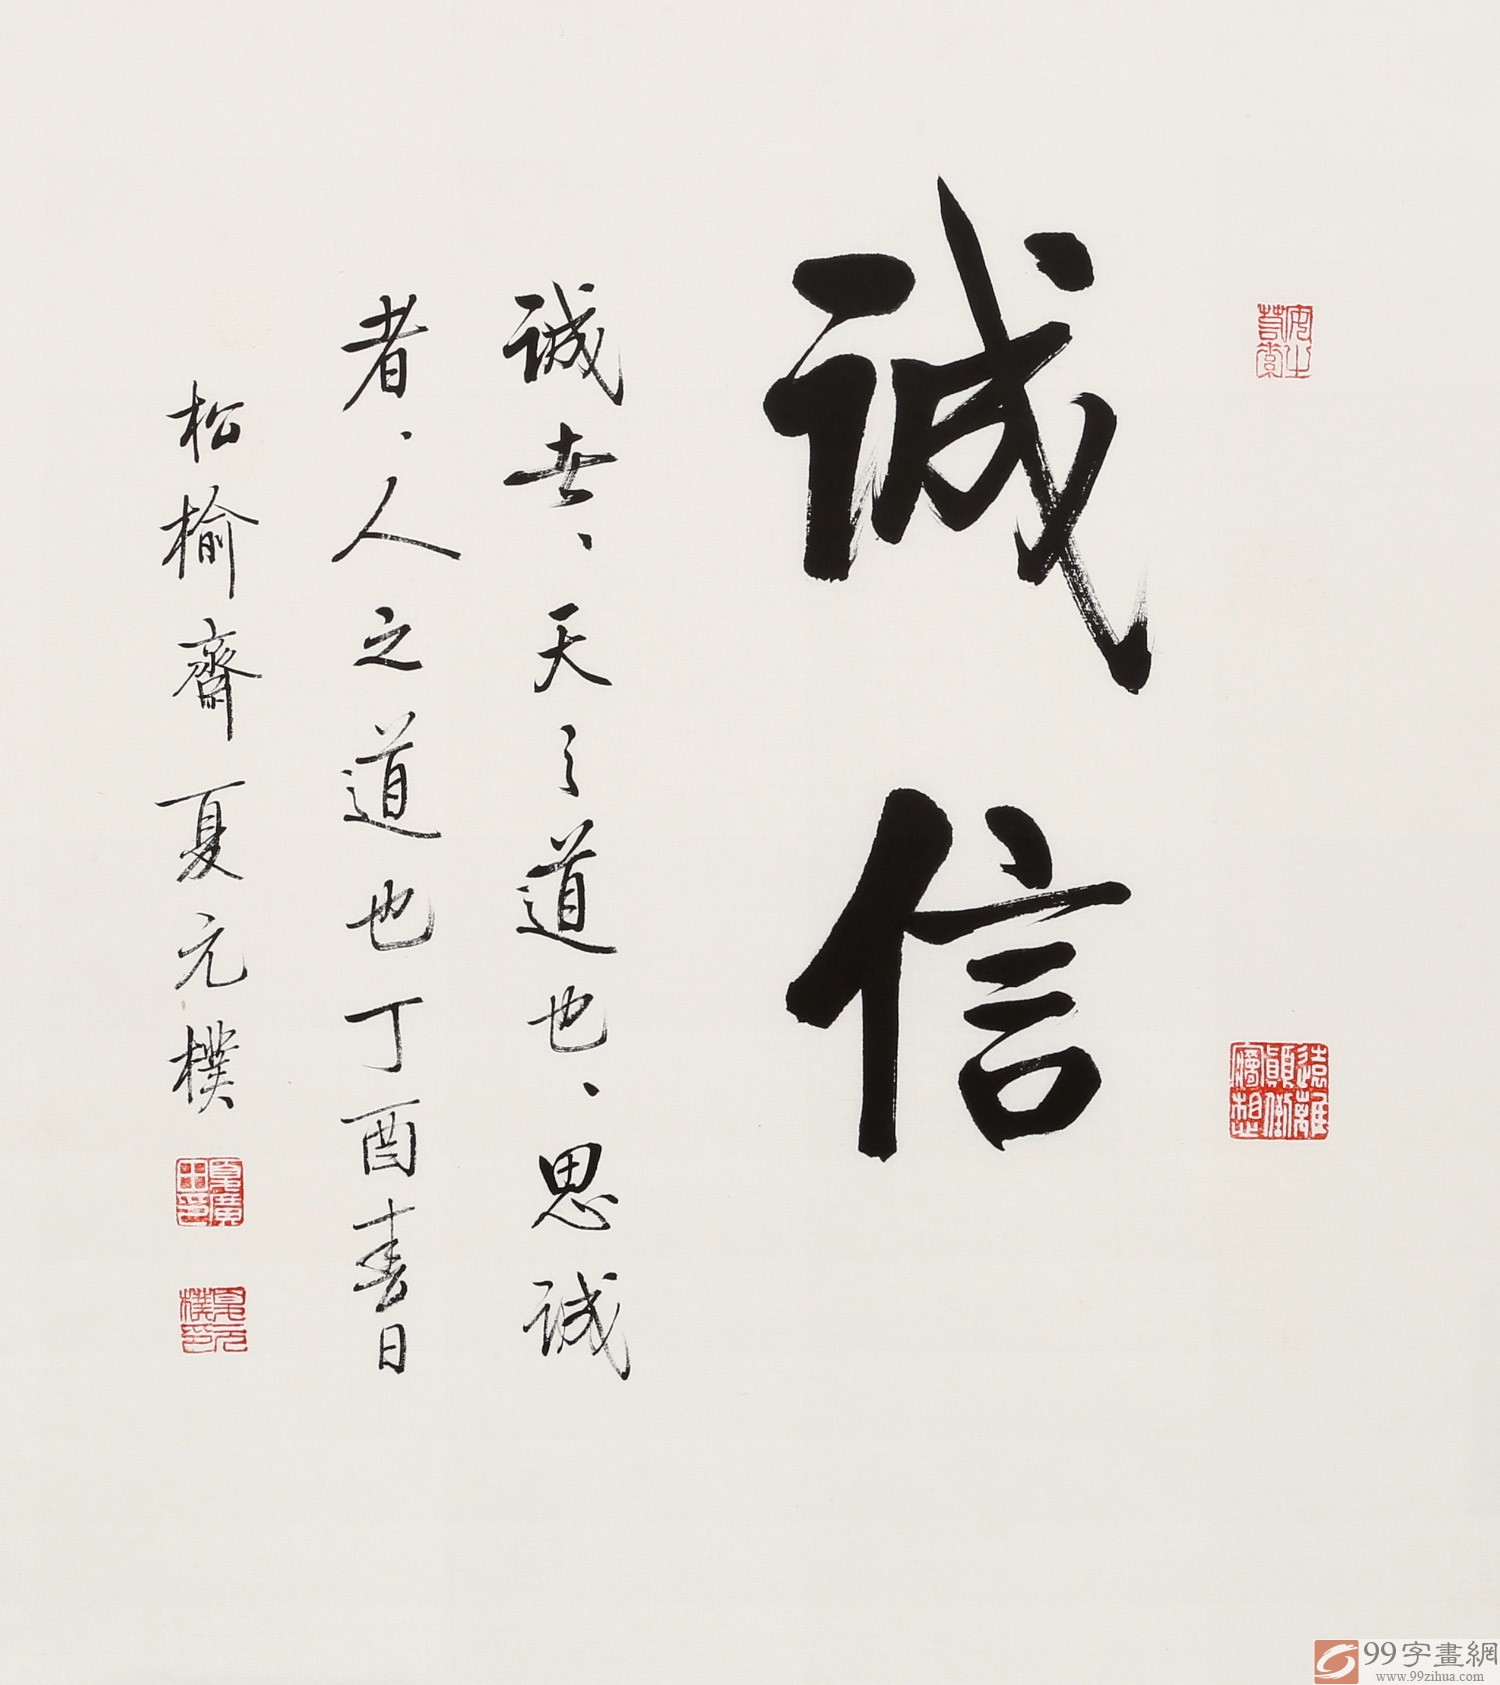 诚信
诚者、天之道也、思诚
者、人之道也丁酉春日
松榆齋夏元樸
遠離
顛倒
夢想
夏元
樸印
99字畫網
www.99zihua.com